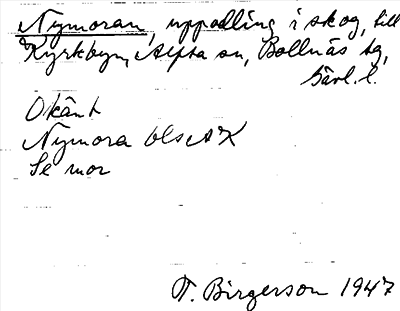 Nymoran, uppodling i skog, till
Kyrkbyn, Alfta sn, Bollnäs tg,
Gävl. l.
Okänt
Nymora
Se mor
T. Birgerson 1947